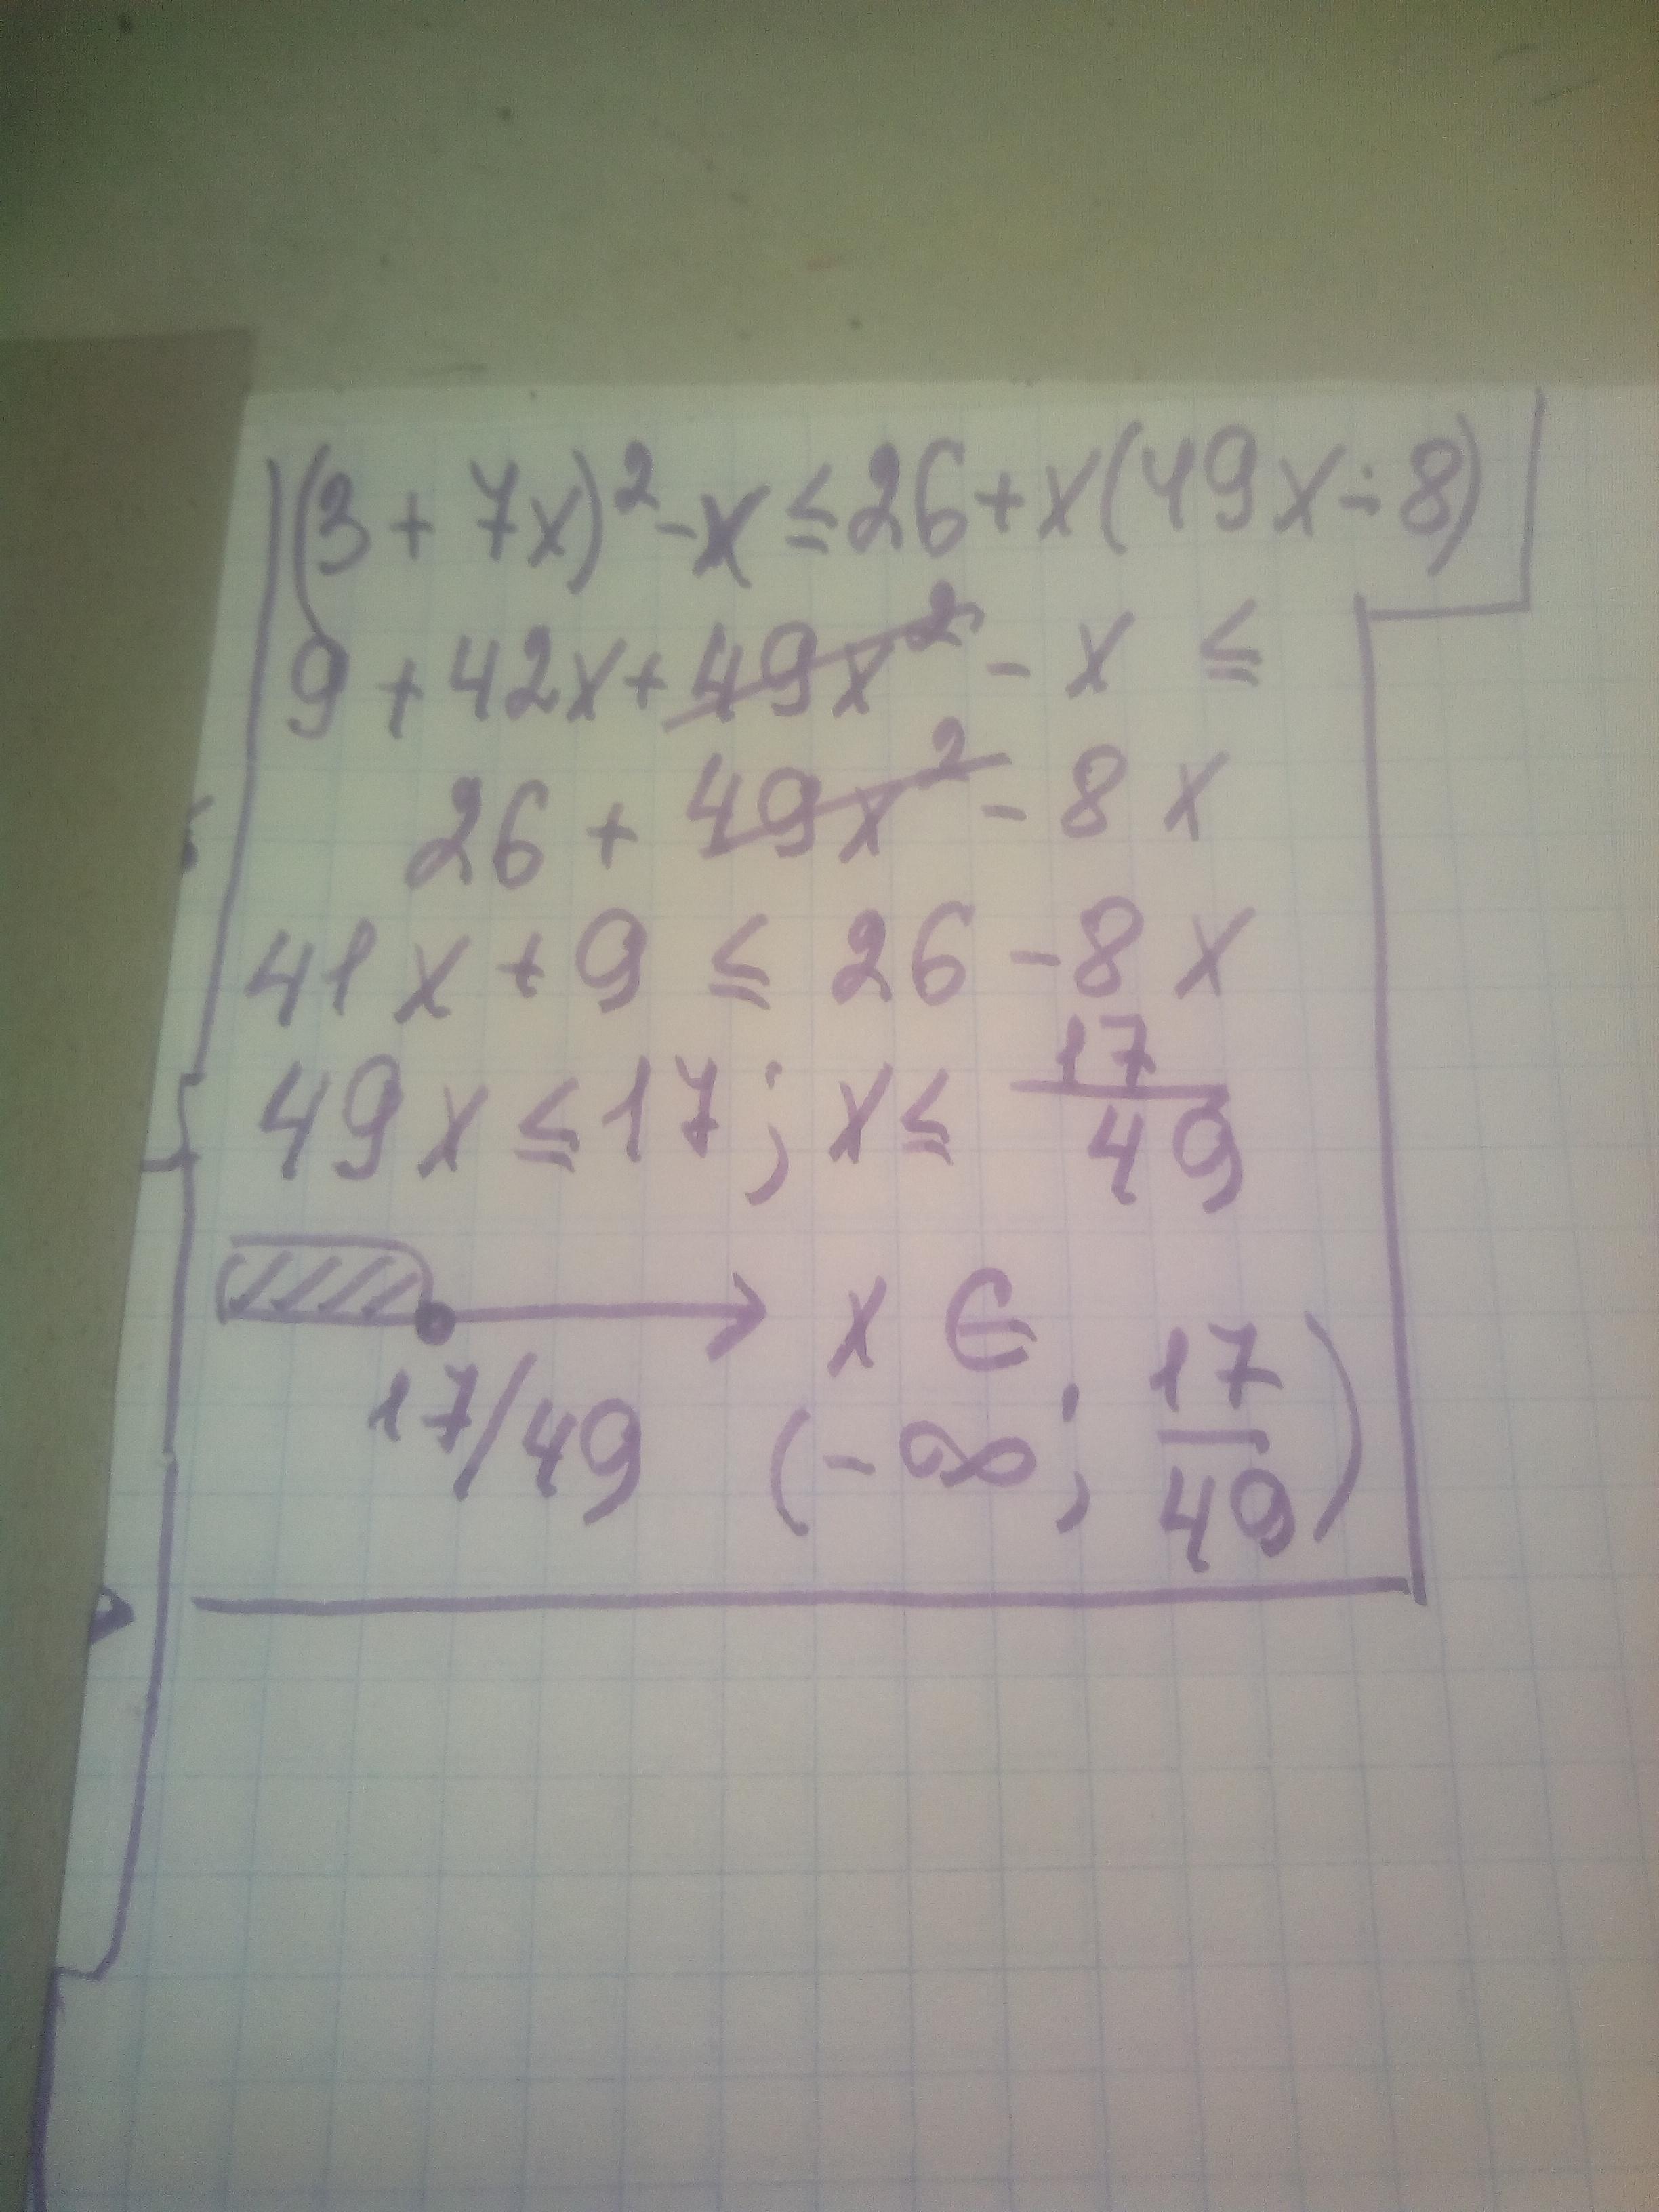 (3 + 7x)² - x ≤ 26 + x(49x - 8)
9 + 42x + 49x² - x ≤
26 + 49x² - 8x
41x + 9 ≤ 26 - 8x
49x ≤ 17; x ≤ 17/49
x ∈
17/49 (-∞; 17/49)